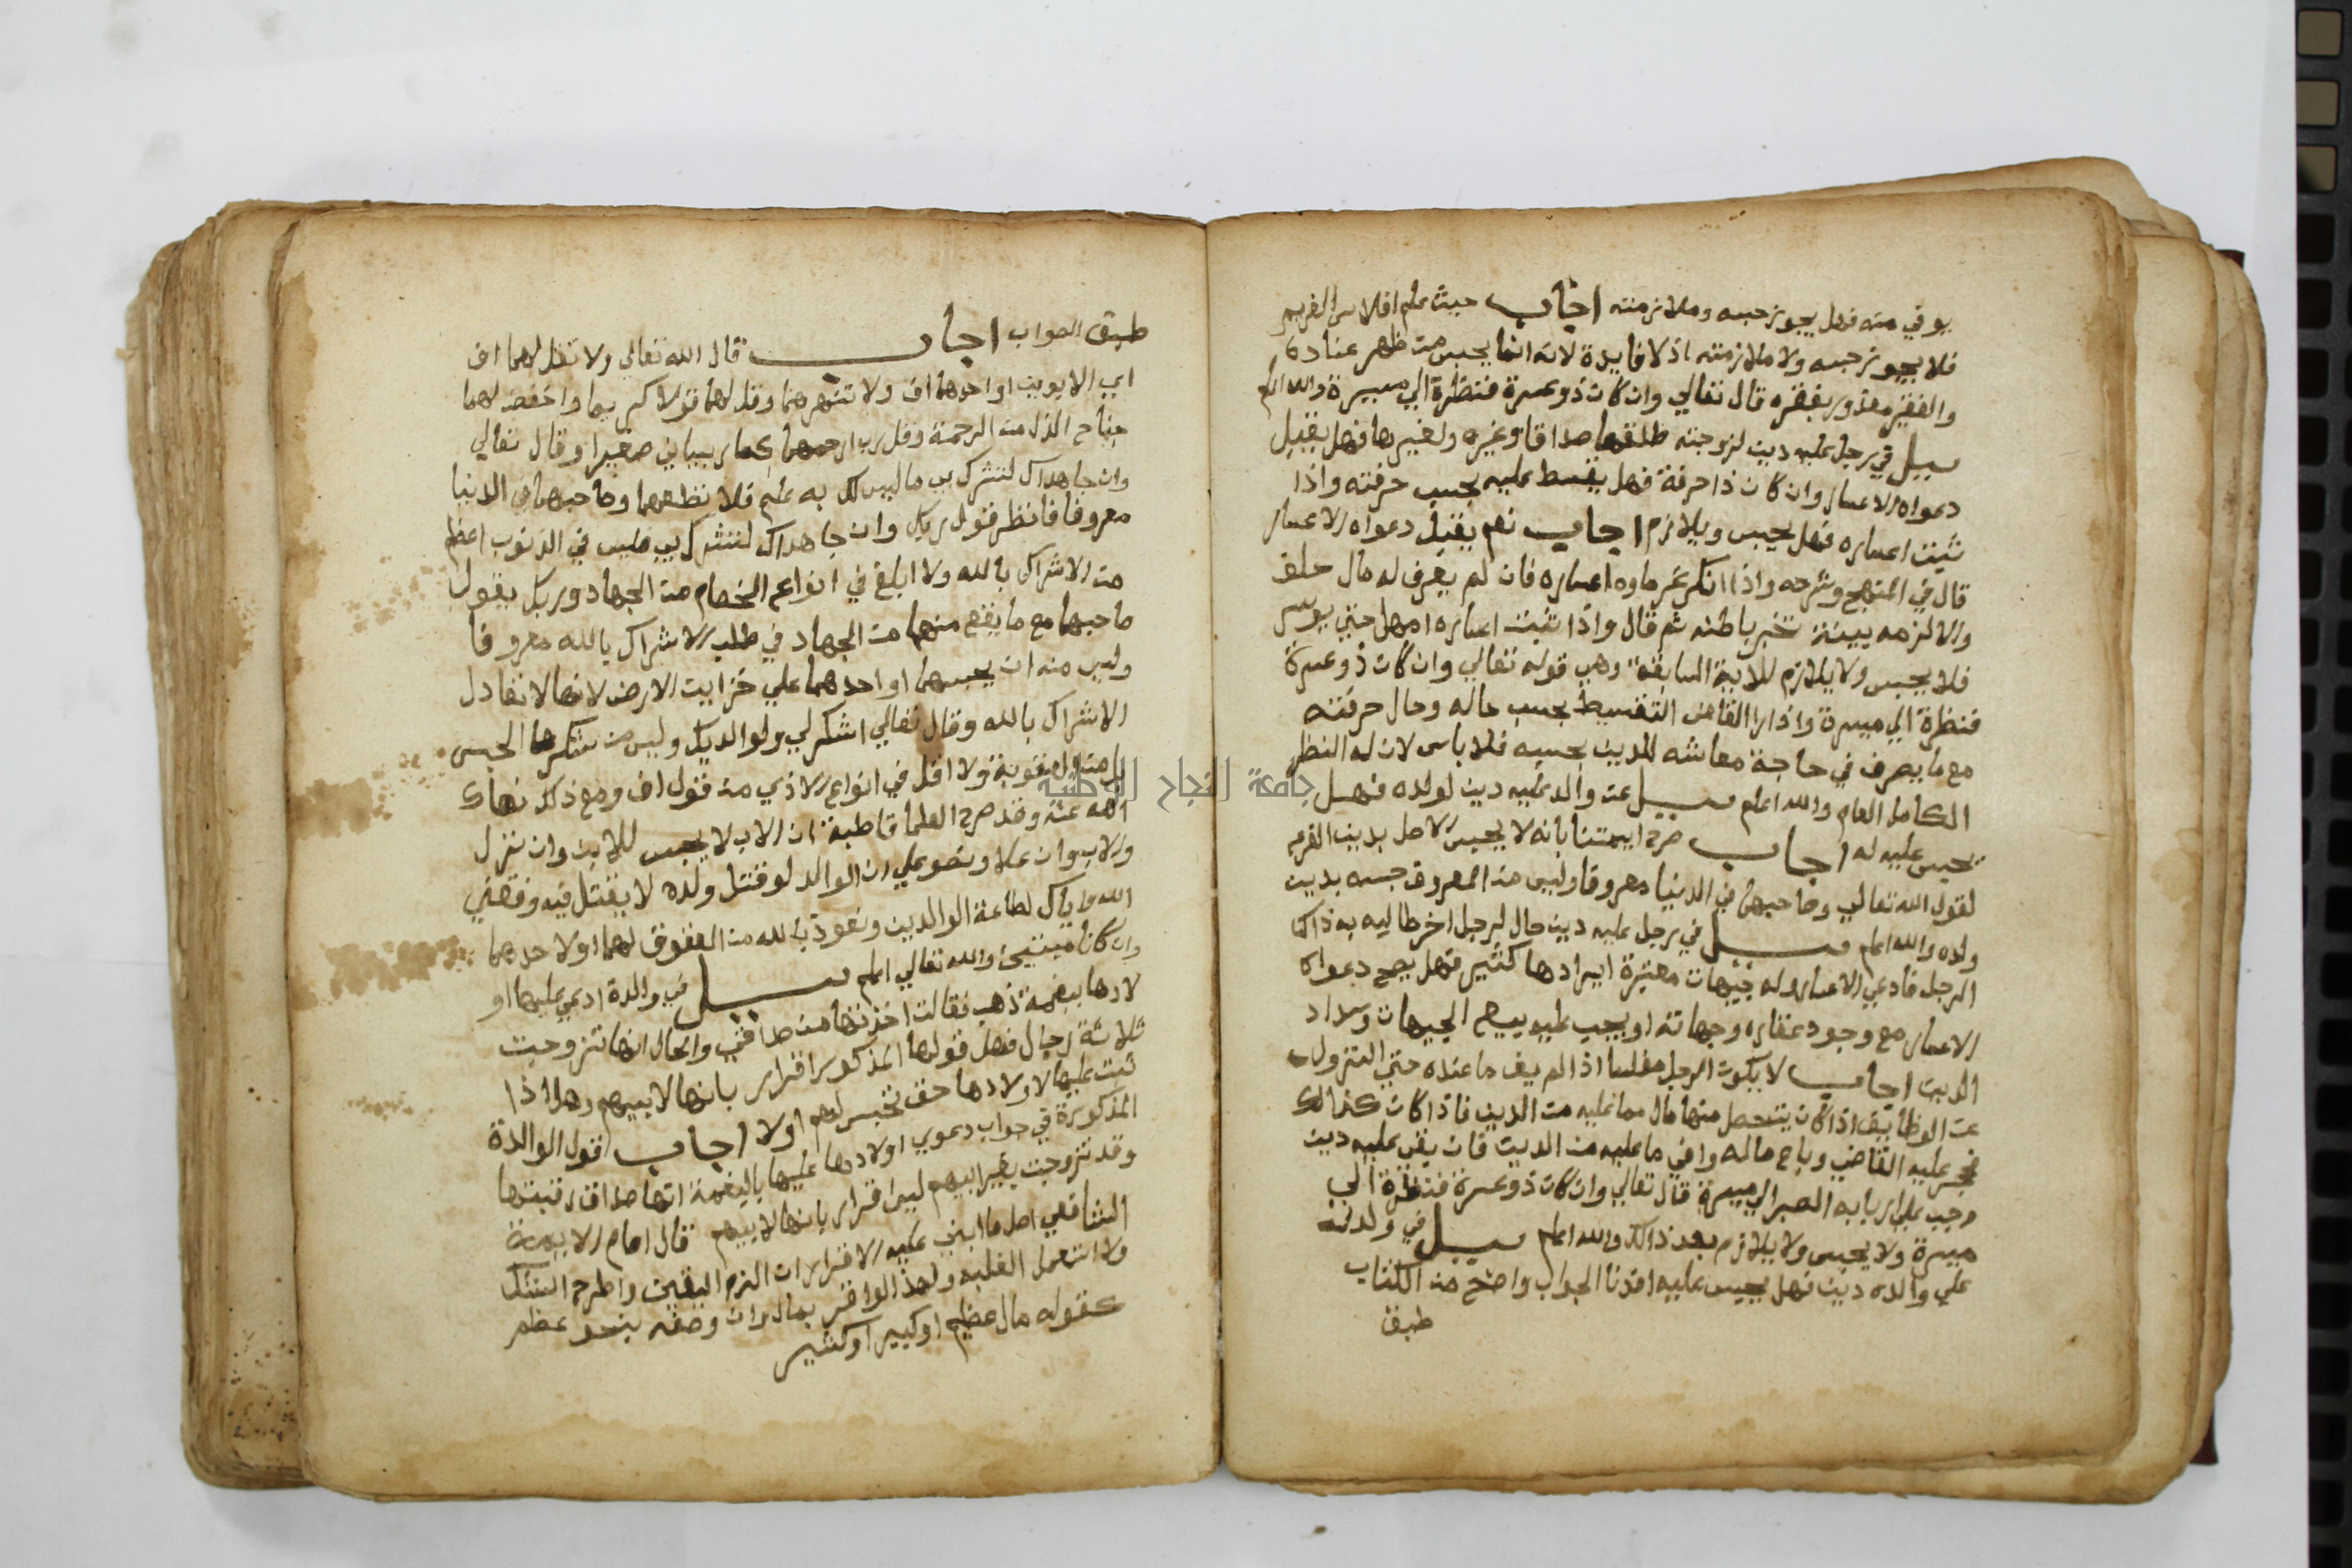 يوفي منه فهل يجوز حبسه وملازمته اجاب حيث علم افلاس الغريم
فلا يجوز حبسه ولا ملازمته اذ لا فايدة لانه انما يحبس من ظهر عناده
والفقير معذور بفقره قال تعالي وان كان ذو عسرة فنظرة الي ميسرة والله اعلم
سيل في رجل عليه دين لزوجته طلقها صداقا وغيره ولغيرها فهل يقبل
دعواه الاعسار وان كان ذا حرفة فهل يقسط عليه بحسب حرفته واذا
ثبت اعساره فهل يحبس ويلازم اجاب نعم يقبل دعواه الاعسار
قال في المنهج وشرحه واذا انكر غرماوه اعساره فان لم يعرف له مال حلف
والا لزمه بينة تخبر باطنه ثم قال واذا ثبت اعساره امهل حتي يوسر
فلا يحبس ولا يلازم للاية السابقة وهي قوله تعالي وان كان ذو عسرة
فنظرة الي ميسرة واذا راا القاضي التقسيط بحسب حاله وحال حرفته
مع ما يصرف في حاجة معاشه للمدين بحسبه فلا باس لان له النظر
الكامل العام والله اعلم سيل عن والد عليه دين لولده فهل
يحبس عليه له اجاب صرح ايمتنا بانه لا يحبس الاصل بدين الفرع
لقول الله تعالي وصاحبهما في الدنيا معروفا وليس من المعروف حبسه بدين
ولده والله اعلم سيل في رجل عليه دين حال لرجل اخر طالبه به ذاك
الرجل فادعي الاعسار وله جيهات معتبرة ايرادها كثير فهل يصح دعواه
الاعسار مع وجود عقاره وجهاته او يجب عليه بيع الجيهات وسداد
الدين اجاب لا يكون الرجل مفلسا اذا لم يف ما عنده حتي النزول
عن الوظايف اذا كان يتحصل منها مال مما عليه من الدين فاذا كان كذالك
حجر عليه القاضي وباع ماله وافي ما عليه من الدين فان بقي عليه دين
وجب علي اربابه الصبر الي ميسرة قال تعالي وان كان ذو عسرة فنظرة الي
ميسرة ولا يحبس ولا يلازم بعد ذالك والله اعلم سيل في ولد له
علي والده دين فهل يحبس عليه افدنا الجواب واضح من الكتاب
طبق
طبق الصواب اجاب قال الله تعالي ولا تقل لهما اف
اي الابوين او احدهما اف ولا تنهرهما وقل لهما قولا كريما واخفض لهما
جناح الذل من الرحمة وقل رب ارحمهما كما ربياني صغيرا وقال تعالي
وان جاهداك لتشرك بي ما ليس لك به علم فلا تطعهما وصاحبهما في الدنيا
معروفا فانظر قول ربك وان جاهداك لتشرك بي فليس في الذنوب اعظم
من الاشراك بالله ولا ابلغ في انواع الخصام من الجهاد وربك يقول
صاحبهما مع ما يقع منهما من الجهاد في طلب الاشراك بالله معروفا
وليس منه ان يحبسهما او احدهما علي خزاين الارض لانها لا تعادل
الاشراك بالله وقال تعالي اشكر لي ولوالديك وليس من شكرهما الحبس
ولا اقل في انواع الاذي من قول اف ومع ذلك نهاك
الله عنه وقد صرح العلما قاطبة ان الاب لا يحبس للابن وان نزل
والاب وان علا ونصو علي ان الوالد لو قتل ولده لا يقتل فيه وفقني
الله واياك لطاعة الوالدين ونعوذ بالله من العقوق لهما او لاحدهما
وان كانا ميتين والله تعالي اعلم سيل في والدة ادعي عليها او
لادها ذهب فقالت اخذتها من صداقي والحال انها تزوجت
ثلاثة رجال فهل قولها المذكور اقرار بانها لابيهم وهل اذا
ثبت عليها لاولادها حق تحبس لهم اولا اجاب قول الوالدة
المذكورة في جواب دعوي اولادها عليها انها صداق
وقد تزوجت بغير ابيهم ليس اقرار بانها لابيهم قال امام الايمة
الشافعي اصل ما ابني عليه الاقرار ان الزم اليقين واطرح الشك
ولا استعمل الغلبة ولهذا لو اقر بمال وان وصفه بنحو عظم
كقوله مال عظيم او كبير او كثير
جامعة النجاح الوطنية